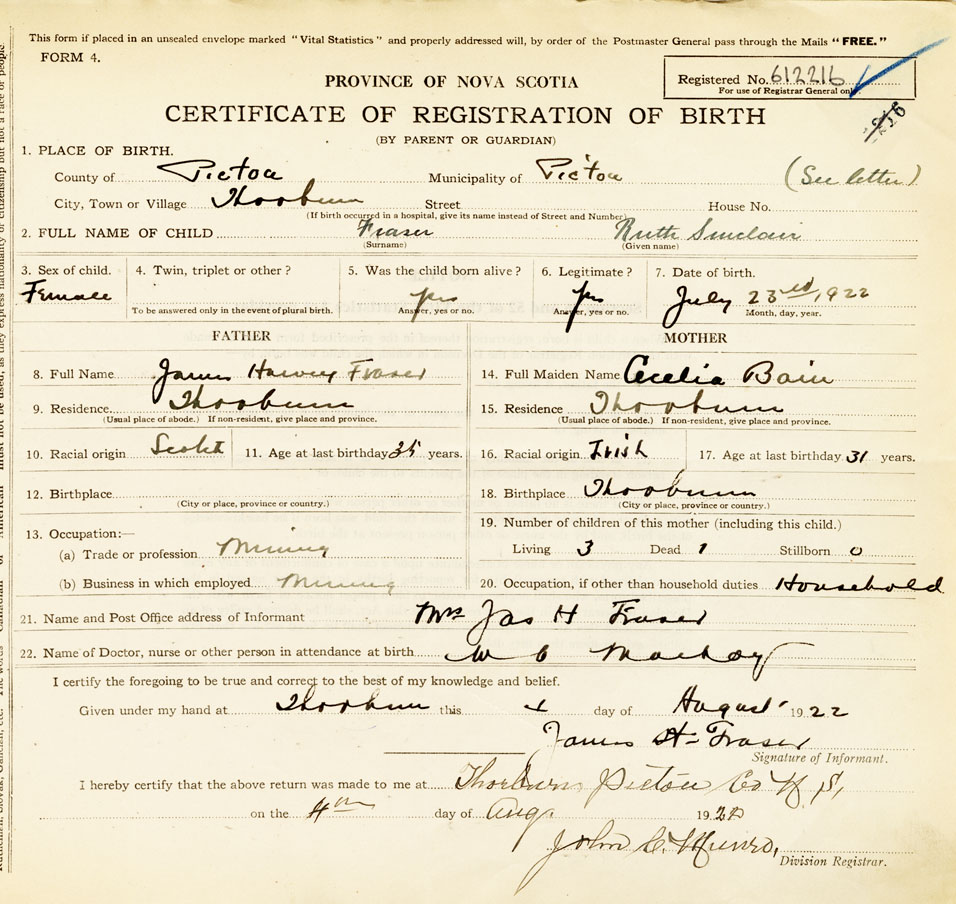 This form if placed in an unsealed envelope marked "Vital Statistics" and properly addressed will, by order of the Postmaster General pass through the Mails "FREE."
FORM 4.
PROVINCE OF NOVA SCOTIA
Registered No. 612216
For use of Registrar General only
CERTIFICATE OF REGISTRATION OF BIRTH
(BY PARENT OR GUARDIAN)
1. PLACE OF BIRTH.
County of Pictou Municipality of Pictou (See letter)
City, Town or Village Thorburn Street House No.
(If birth occurred in a hospital, give its name instead of Street and Number)
2. FULL NAME OF CHILD Fraser Ruth Sinclair
(Surname) (Given name)
3. Sex of child. 4. Twin, triplet or other? 5. Was the child born alive? 6. Legitimate? 7. Date of birth.
Female yes yes July 23rd, 1922
To be answered only in the event of plural birth. Answer, yes or no. Answer, yes or no. Month, day, year.
FATHER
8. Full Name James Harvey Fraser
9. Residence Thorburn
(Usual place of abode.) If non-resident, give place and province.
10. Racial origin Scotch 11. Age at last birthday 35 years.
12. Birthplace
(City or place, province or country.)
13. Occupation:—
(a) Trade or profession Mining
(b) Business in which employed Mining
MOTHER
14. Full Maiden Name Cecelia Bain
15. Residence Thorburn
(Usual place of abode.) If non-resident, give place and province.
16. Racial origin Irish 17. Age at last birthday 31 years.
18. Birthplace Thorburn
(City or place, province or country.)
19. Number of children of this mother (including this child.)
Living 3 Dead 1 Stillborn 0
20. Occupation, if other than household duties Household
21. Name and Post Office address of Informant Mrs Jas H Fraser
22. Name of Doctor, nurse or other person in attendance at birth W C Mackay
I certify the foregoing to be true and correct to the best of my knowledge and belief.
Given under my hand at Thorburn this 4 day of August 1922
James H. Fraser
Signature of Informant.
I hereby certify that the above return was made to me at Thorburn Pictou Co N.S,
on the 4th day of Aug. 1922
John C. Munro,
Division Registrar.